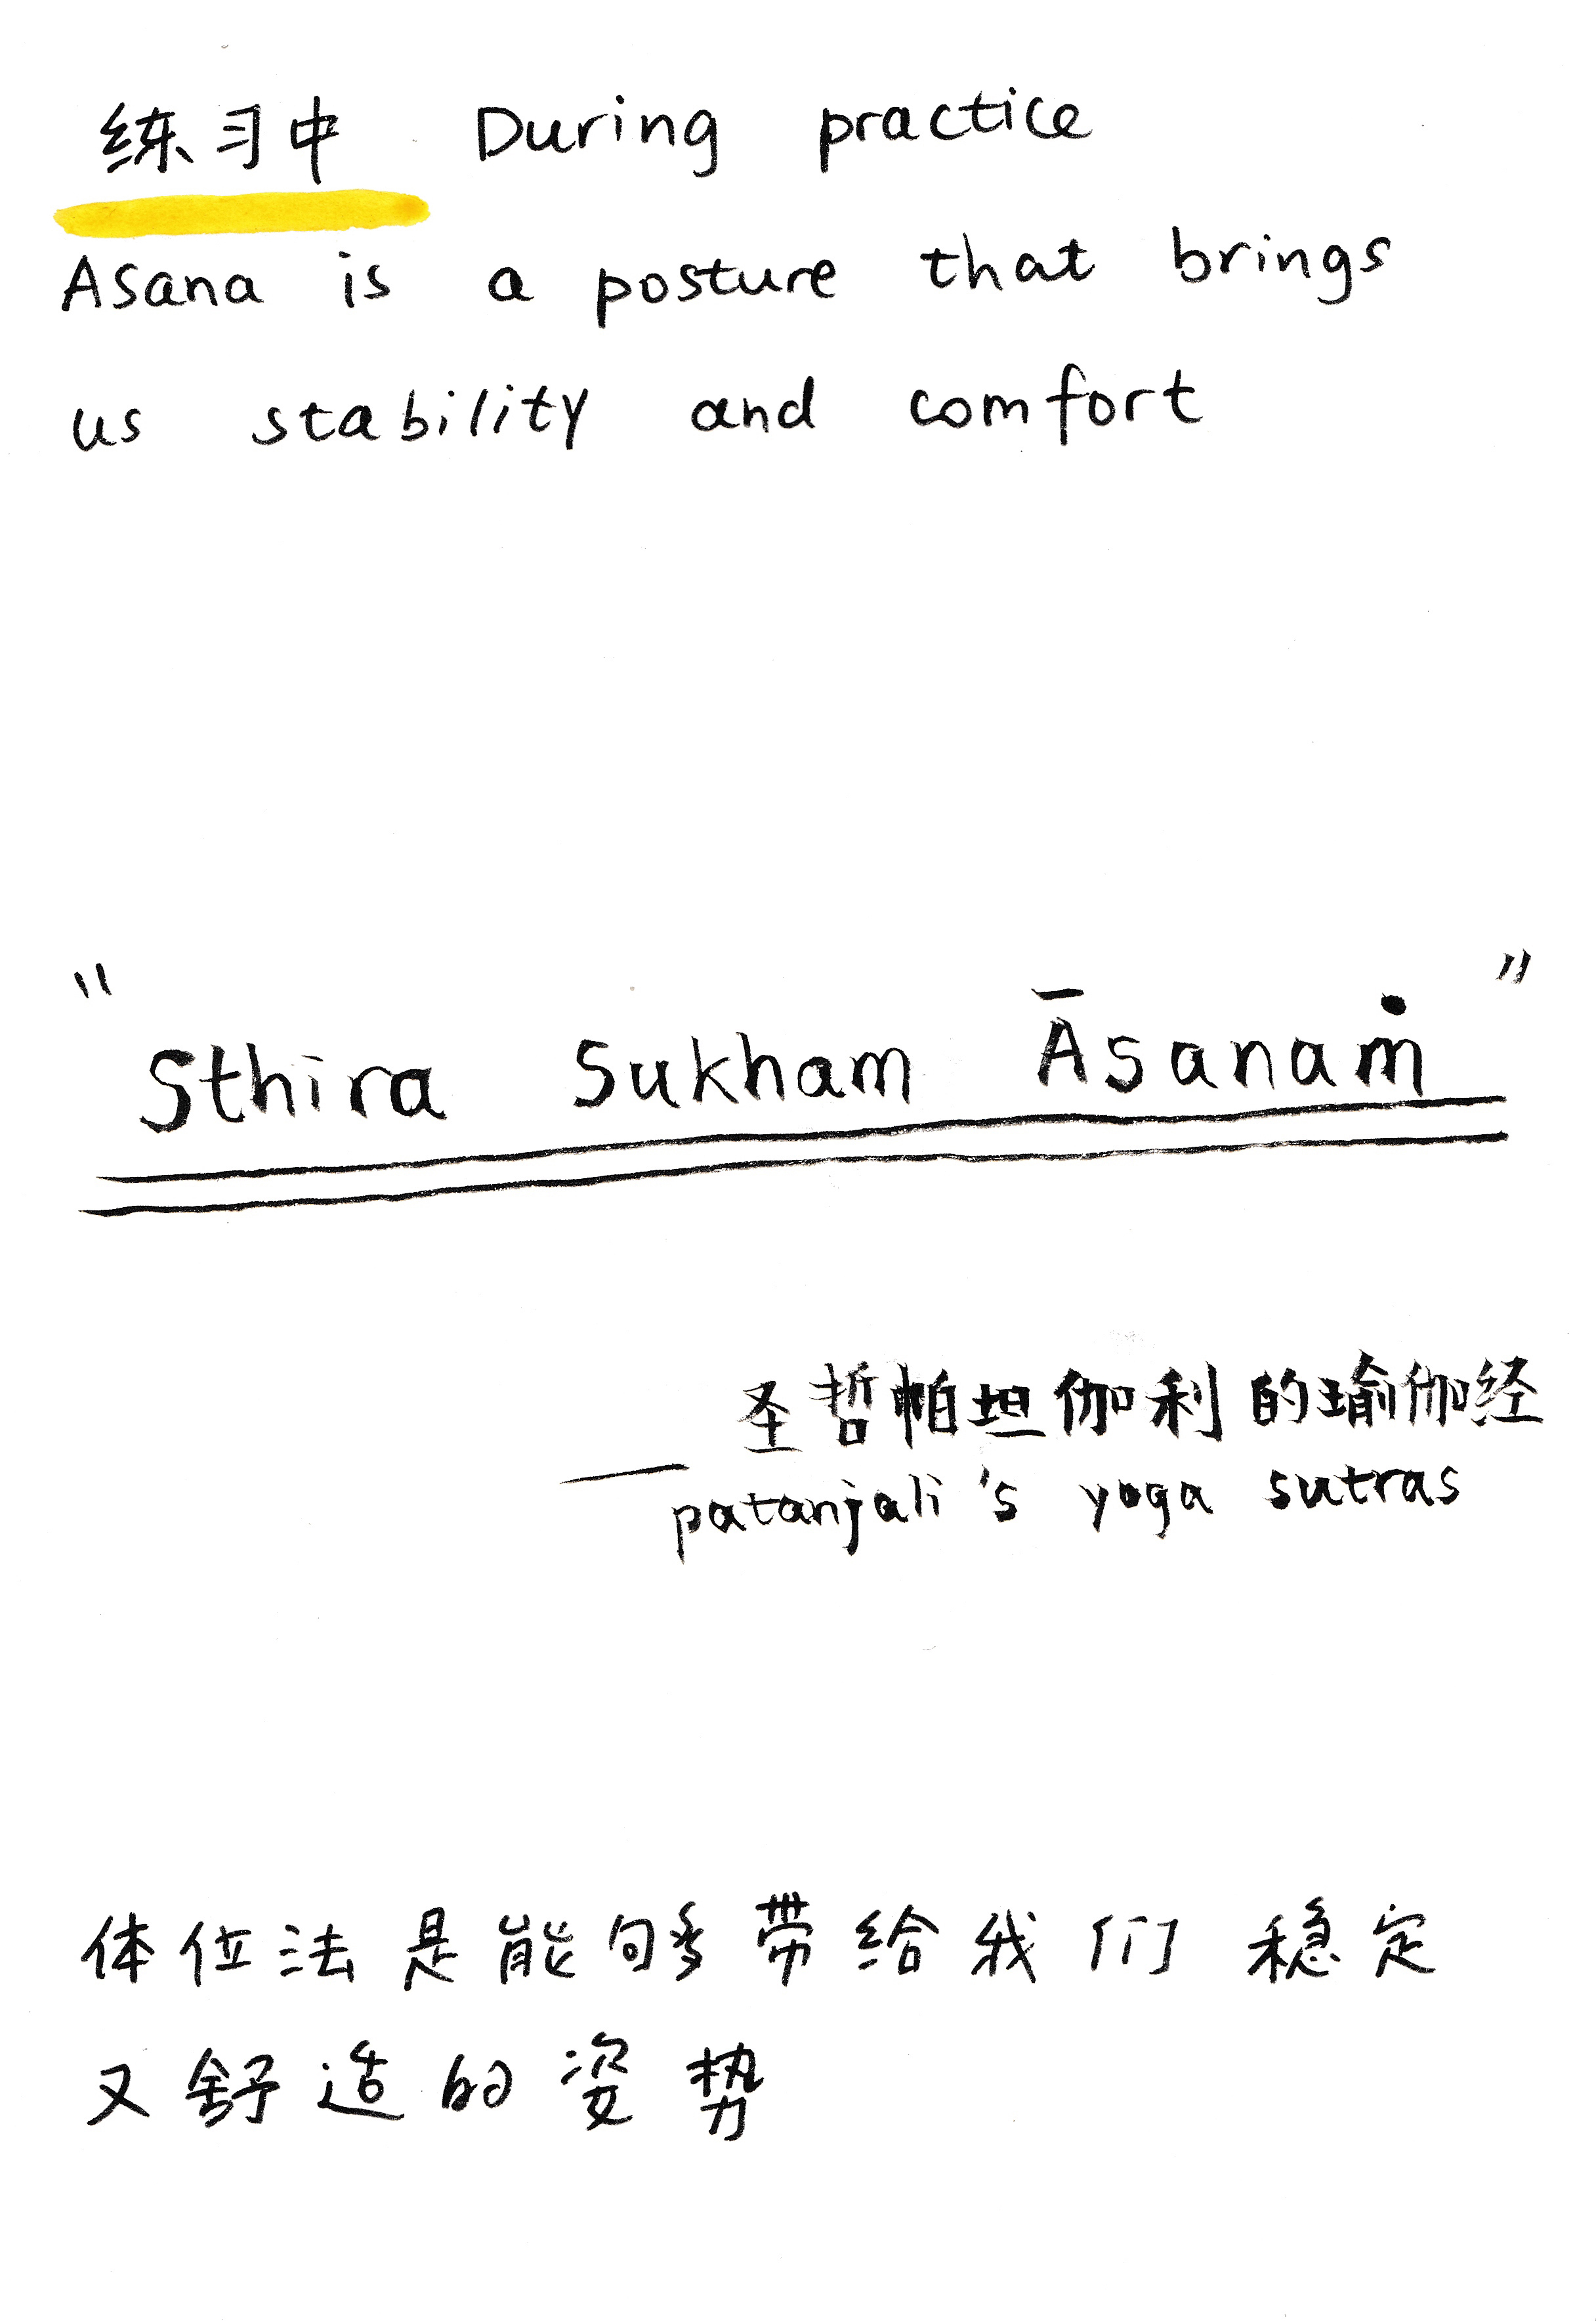 练习中 During practice
Asana is a posture that brings
us stability and comfort
"Sthira Sukham Āsanaṁ"
圣哲帕坦伽利的瑜伽经
— patanjali's yoga sutras
体位法是能够带给我们稳定
又舒适的姿势